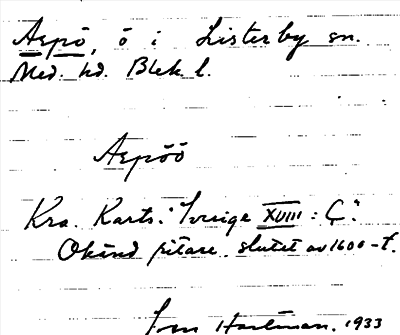 Aspö, ö i Listerby sn.
Med. hd. Blek l.
Aspöö
Kra. Karts. Sverige XVIII : Ç:
Okänd ritare. slutet av 1600-t.
Hartman. 1933